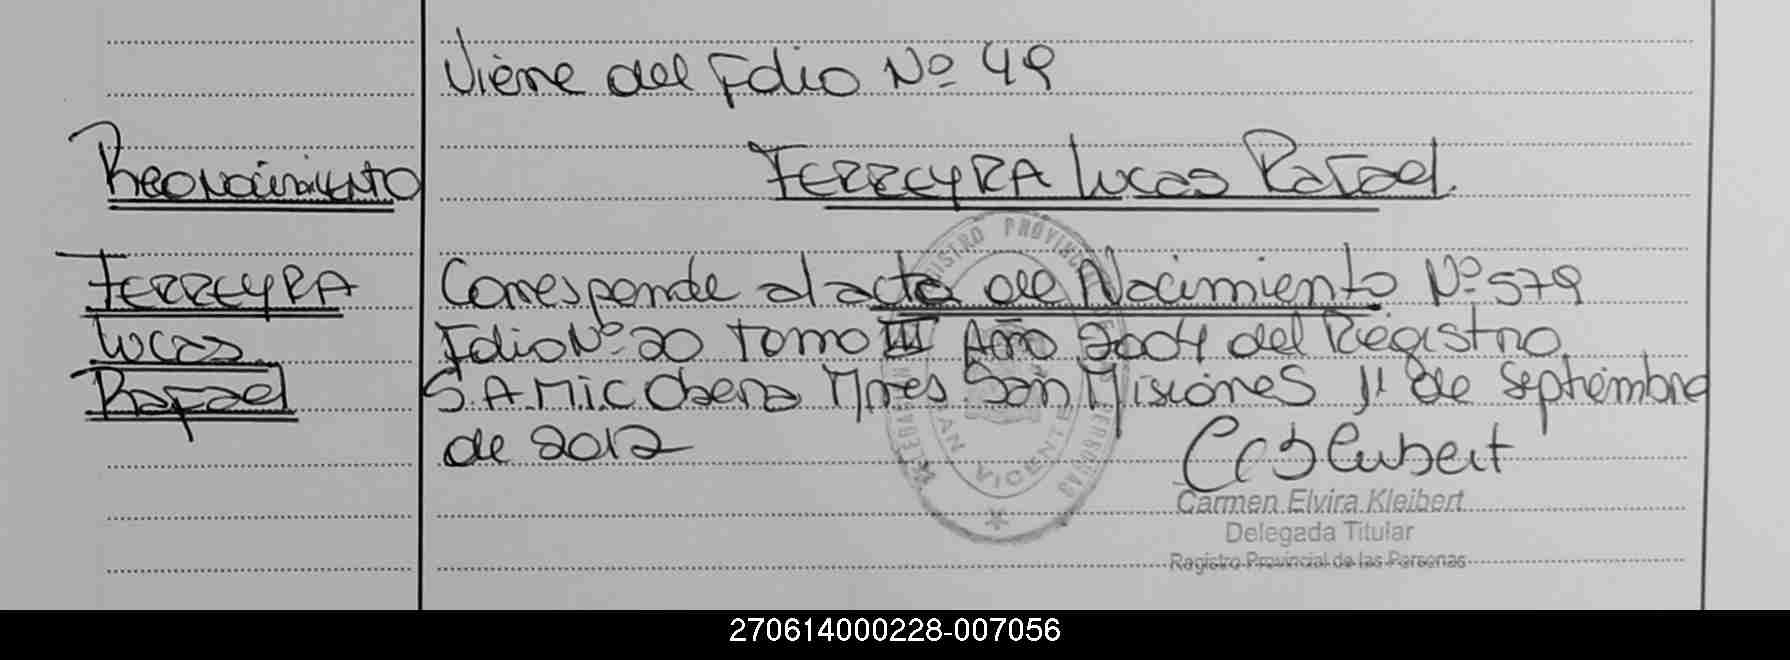 Viene del Folio Nº 49
Reconocimiento
FERREYRA Lucas Rafael.
FERREYRA
Lucas
Rafael
Corresponde al acta de Nacimiento Nº 579
Folio Nº 20 Tomo III Año 2004 del Registro
S.A.M.i.C Obera Mnes. San Misiones 11 de Septiembre
de 2012
REGISTRO PROVINCIAL
SAN VICENTE
Carmen Elvira Kleibert
Delegada Titular
Registro Provincial de las Personas
270614000228-007056